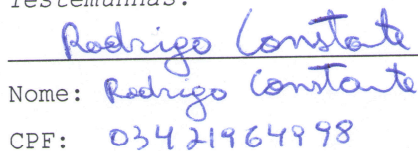 Testemunhas:
Rodrigo Constante
Nome: Rodrigo Constante
CPF: 03421964998